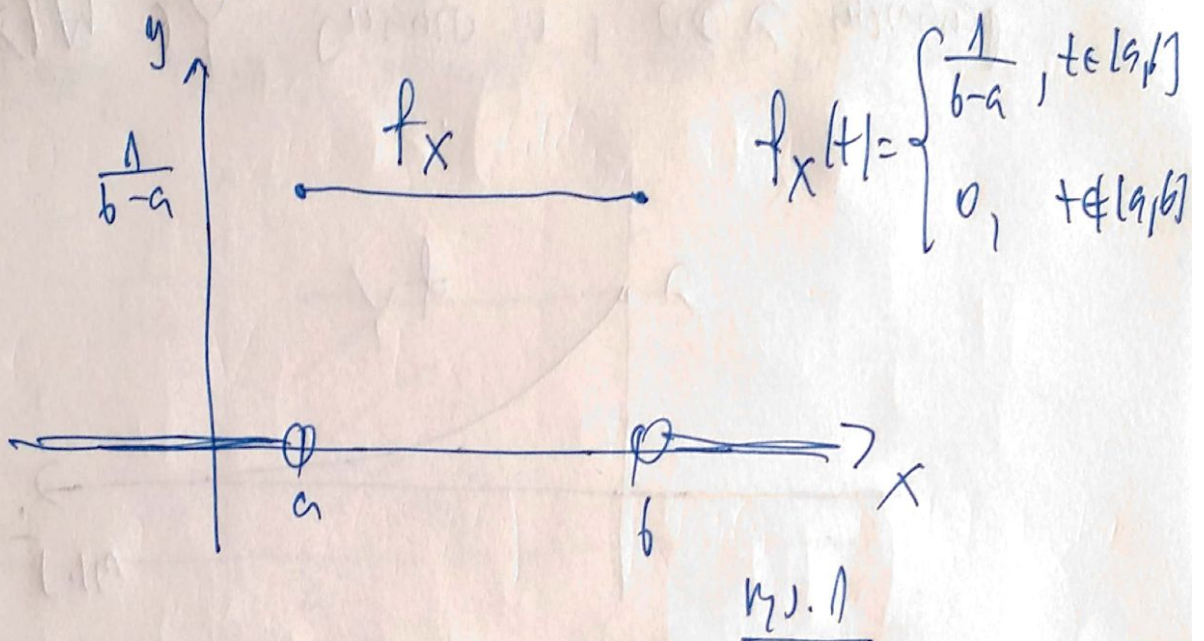 y
1/(b-a)
f_X
f_X(t) = { 1/(b-a) , t∈[a,b]
0, t∉[a,b]
x
a
b
rys. 1